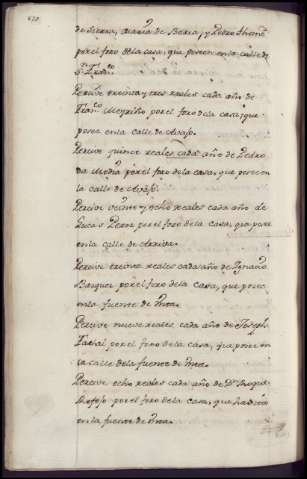 de Sierra, Maria de Beria, y Pedro
por el foro de la casa, que poseen en la calle de
Percive treinta y tres reales cada año de
Fran.co Meyriño por el foro de la casa, que
posee en la calle de Avajo.
Percive quince reales cada año de Pedro
da por el foro de la casa, que posee en
la calle de Avajo.
Percive veinte y ocho reales cada año de
Lucas Perez por el foro de la casa, que posee
en la calle de Arriva.
Percive treinta reales cada año de Ygnacio
Basquez por el foro de la casa, que posee
en la fuente de
Percive nueve reales cada año de Joseph
por el foro de la casa, que posee en
la calle de la fuente de
Percive ocho reales cada año de D.n Roque
por el foro de la casa, que
en la fuente de